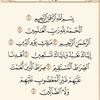 بِسْمِ ٱللَّهِ ٱلرَّحْمَٰنِ ٱلرَّحِيمِ
ٱلْحَمْدُ لِلَّهِ رَبِّ ٱلْعَٰلَمِينَ
ٱلرَّحْمَٰنِ ٱلرَّحِيمِ مَٰلِكِ يَوْمِ ٱلدِّينِ
إِيَّاكَ نَعْبُدُ وَإِيَّاكَ نَسْتَعِينُ ٱهْدِنَا
ٱلصِّرَٰطَ ٱلْمُسْتَقِيمَ صِرَٰطَ ٱلَّذِينَ أَنْعَمْتَ
عَلَيْهِمْ غَيْرِ ٱلْمَغْضُوبِ عَلَيْهِمْ
وَلَا ٱلضَّآلِّينَ